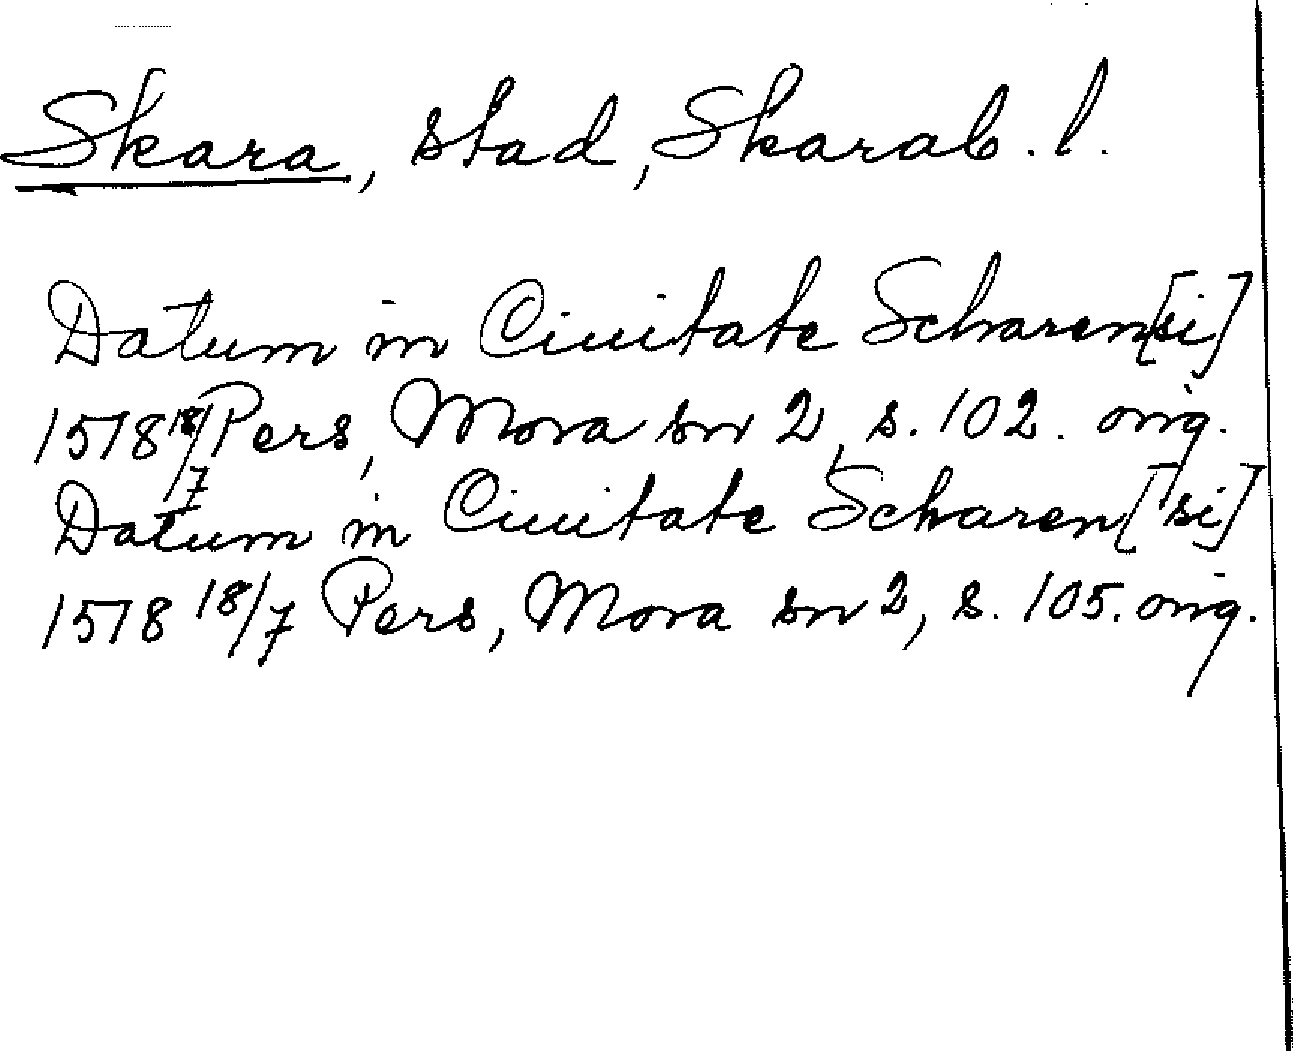 Skara, stad, Skarab. l.
Datum in Ciuitate Scharen[si]
1578 18/7 Pers, Mora sn 2, s. 102. orig.
Datum in Ciuitate Scharen[si]
1578 18/7 Pers, Mora sn 2, s. 105. orig.